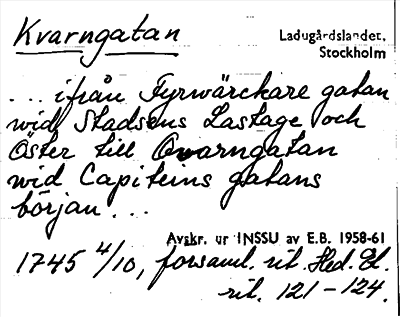 Kvarngatan
Ladugårdslandet,
Stockholm
... ifrån Fyrwärckare gatan
wid Stadsens Lastage och
Öster till Qvarngatan
wid Capiteins gatans
början ...
Avskr. ur INSSU av E.B. 1958-61
1745 4/10, församl. rit. Hed. El.
rit. 121-124.